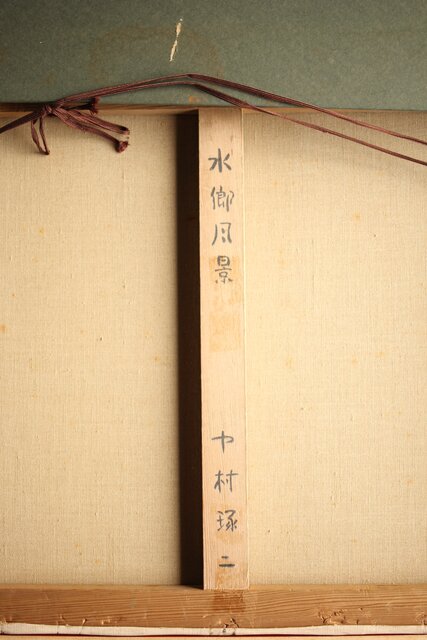 水郷風景
中村琢二